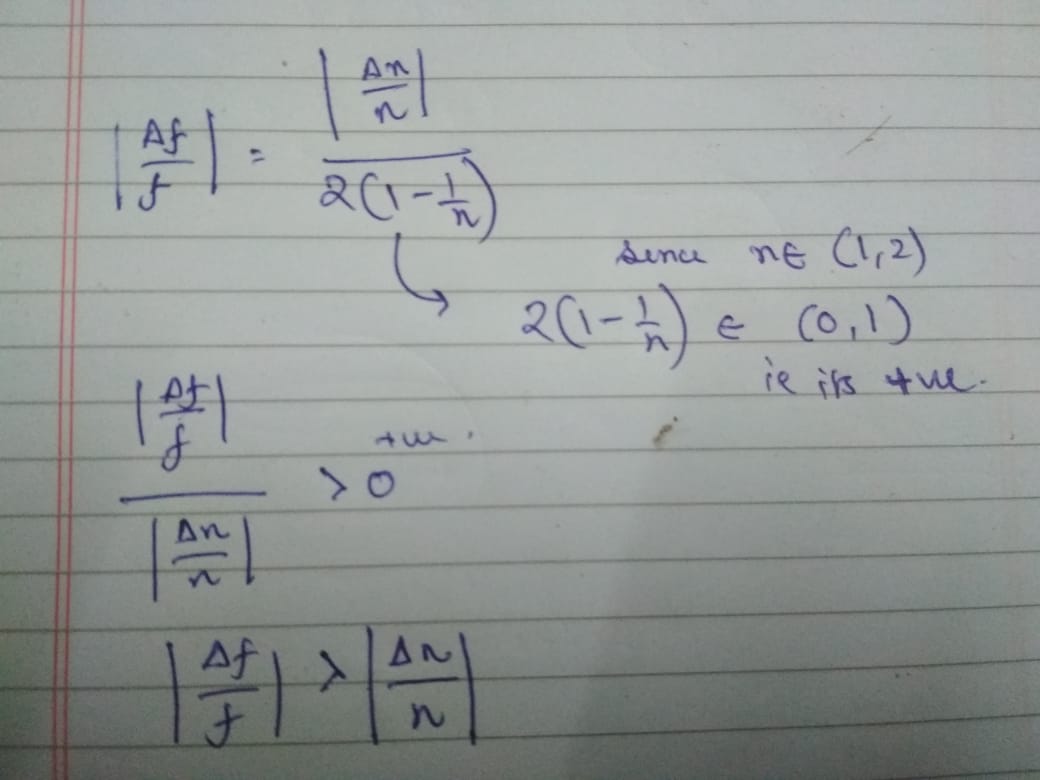 |Δf/f| = |Δn/n| / 2(1-1/n)
since n∈ (1,2)
2(1-1/n) ∈ (0,1)
ie its +ve.
|Δf/f| / |Δn/n| > 0 +ve.
|Δf/f| > |Δn/n|